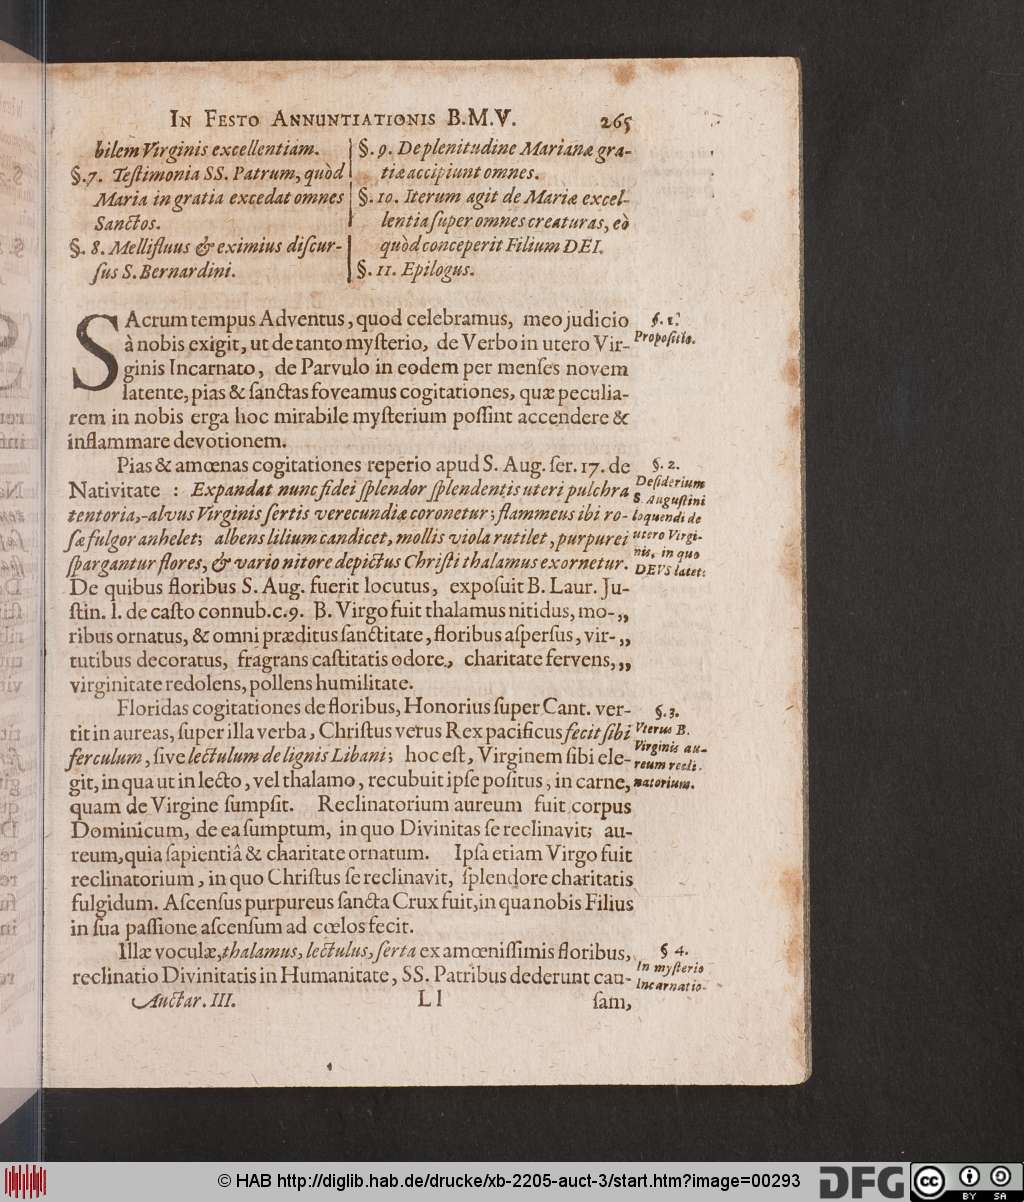 In Festo Annuntiationis B.M.V. 265
bilem Virginis excellentiam.
§.7. Teſtimonia SS. Patrum, quòd
Maria in gratia excedat omnes
Sanctos.
§. 8. Mellifluus & eximius diſcur-
ſus S. Bernardini.
§. 9. De plenitudine Marianæ gra-
tiæ accipiunt omnes.
§. 10. Iterum agit de Mariæ excel-
lentia ſuper omnes creaturas, eò
quòd conceperit Filium DEI.
§. 11. Epilogus.
SAcrum tempus Adventus, quod celebramus, meo judicio
à nobis exigit, ut de tanto myſterio, de Verbo in utero Vir-
ginis Incarnato, de Parvulo in eodem per menſes novem
latente, pias & ſanctas foveamus cogitationes, quæ peculia-
rem in nobis erga hoc mirabile myſterium poſſint accendere &
inflammare devotionem.
§. 1.
Propoſitio.
Pias & amœnas cogitationes reperio apud S. Aug. ſer. 17. de
Nativitate : Expandat nunc fidei ſplendor ſplendentis uteri pulchra
tentoria, alvus Virginis ſertis verecundiæ coronetur; flammeus ibi ro-
ſæ fulgor anhelet; albens lilium candicet, mollis viola rutilet, purpurei
ſpargantur flores, & vario nitore depictus Chriſti thalamus exornetur.
De quibus floribus S. Aug. fuerit locutus, expoſuit B. Laur. Ju-
ſtin. l. de caſto connub. c. 9. B. Virgo fuit thalamus nitidus, mo- „
ribus ornatus, & omni præditus ſanctitate, floribus aſperſus, vir- „
tutibus decoratus, fragrans caſtitatis odore, charitate fervens, „
virginitate redolens, pollens humilitate.
§. 2.
Deſiderium
S. Auguſtini
loquendi de
utero Virgi-
nis, in quo
DEVS latet.
Floridas cogitationes de floribus, Honorius ſuper Cant. ver-
tit in aureas, ſuper illa verba, Chriſtus verus Rex pacificus fecit ſibi
ferculum, ſive lectulum de lignis Libani; hoc eſt, Virginem ſibi ele-
git, in qua ut in lecto, vel thalamo, recubuit ipſe poſitus, in carne,
quam de Virgine ſumpſit. Reclinatorium aureum fuit corpus
Dominicum, de ea ſumptum, in quo Divinitas ſe reclinavit; au-
reum, quia ſapientiâ & charitate ornatum. Ipſa etiam Virgo fuit
reclinatorium, in quo Chriſtus ſe reclinavit, ſplendore charitatis
fulgidum. Aſcenſus purpureus ſancta Crux fuit, in qua nobis Filius
in ſua paſſione aſcenſum ad cœlos fecit.
§. 3.
Vterus B.
Virginis au-
reum recli-
natorium.
Illæ voculæ, thalamus, lectulus, ſerta ex amœniſſimis floribus,
reclinatio Divinitatis in Humanitate, SS. Patribus dederunt cau-
§ 4.
In myſterio
Incarnatio-
Auctar. III. Ll ſam,
© HAB http://diglib.hab.de/drucke/xb-2205-auct-3/start.htm?image=00293
DFG
cc BY SA